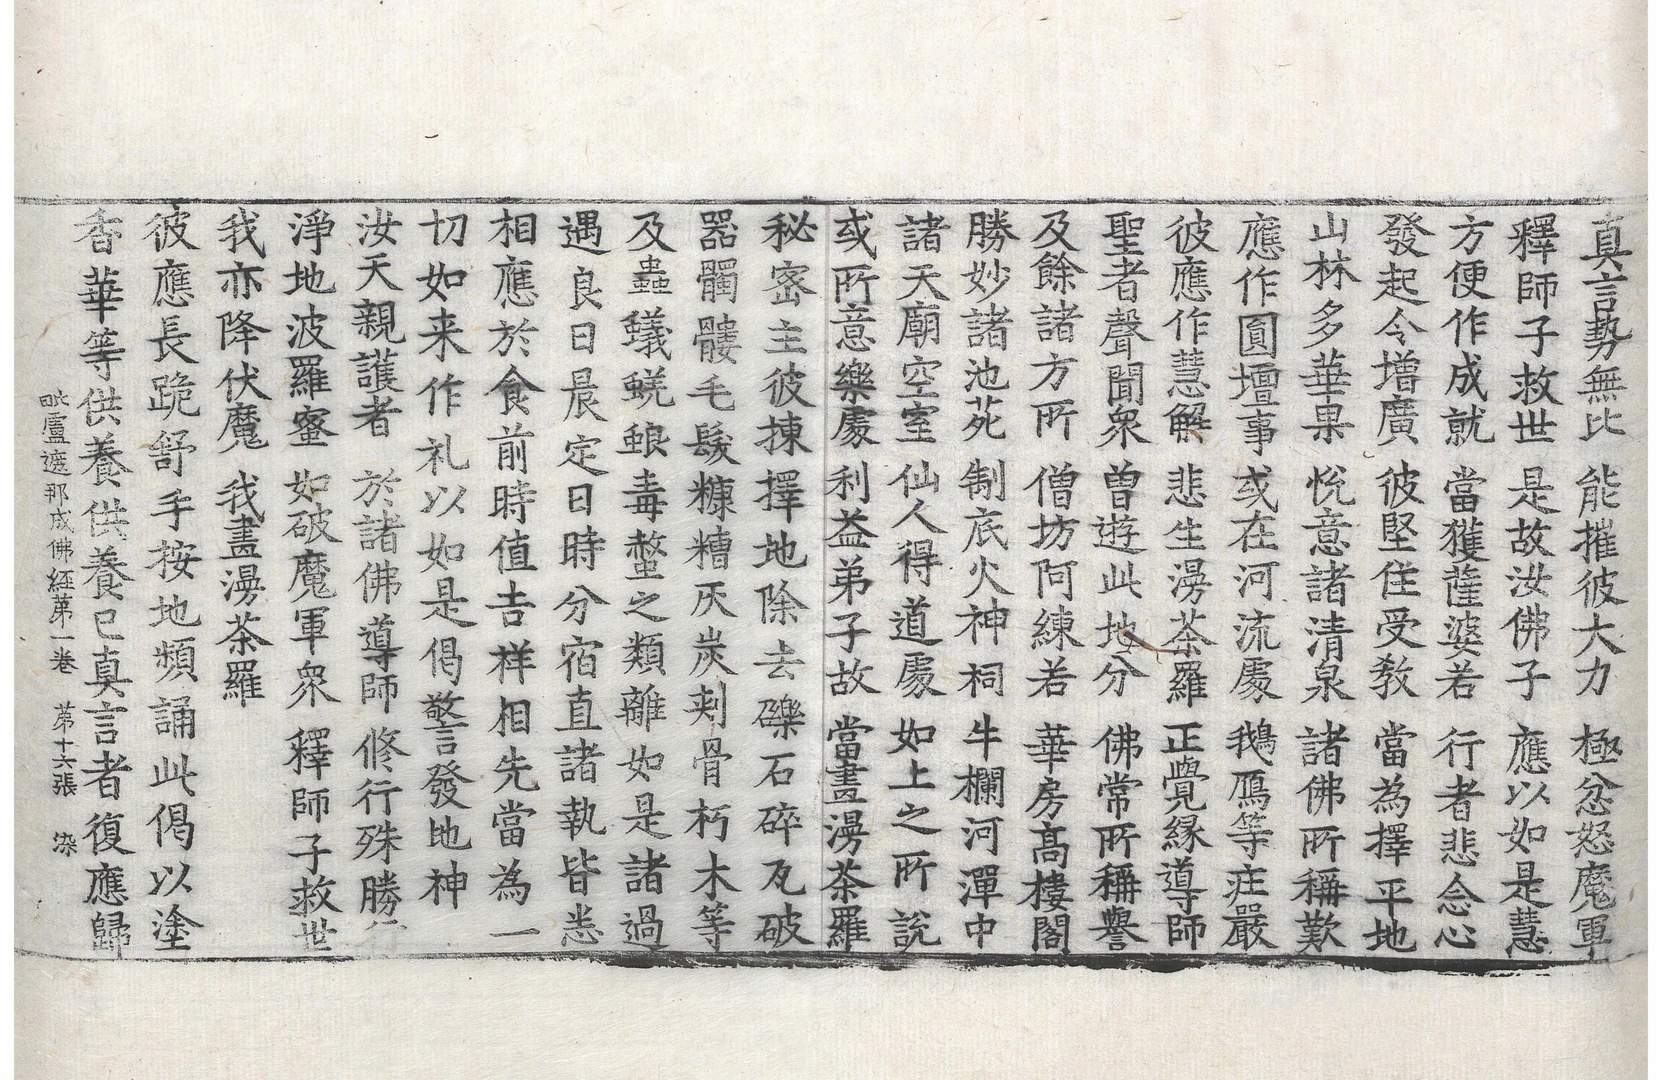 真言勢無比　能摧彼大力　極忿怒魔軍
釋師子救世　是故汝佛子　應以如是慧
方便作成就　當獲薩婆若　行者悲念心
發起令增廣　彼堅住受教　當為擇平地
山林多華果　悅意諸清泉　諸佛所稱歎
應作圓壇事　或在河流處　鵝鴈等庄嚴
彼應作慧解　悲生漫荼羅　正覺緣導師
聖者聲聞眾　曾遊此地分　佛常所稱譽
及餘諸方所　僧坊阿練若　華房高樓閣
勝妙諸池苑　制底火神祠　牛欄河潬中
諸天廟空室　仙人得道處　如上之所說
或所意樂處　利益弟子故　當畫漫荼羅
秘密主彼揀擇地除去礫石碎瓦破
器髑髏毛髮糠糟灰炭刺骨朽木等
及蟲蟻蜣蜋毒螫之類離如是諸過
遇良日晨定日時分宿直諸執皆悉
相應於食前時值吉祥相先當為一
切如来作礼以如是偈警發地神
汝天親護者　於諸佛導師　修行殊勝行
淨地波羅蜜　如破魔軍眾　釋師子救世
我亦降伏魔　我畫漫荼羅
彼應長跪舒手按地頻誦此偈以塗
香華等供養供養已真言者復應歸
毗盧遮那成佛經第一卷　第十六張　染